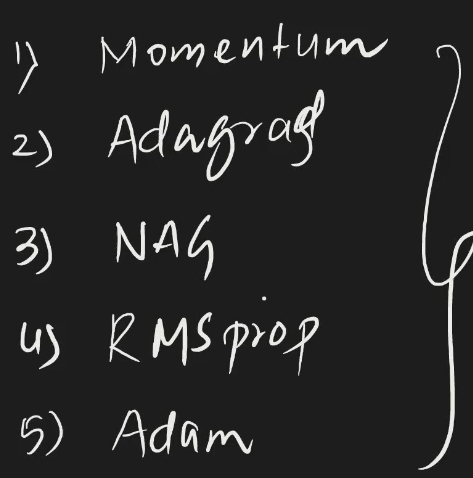 1) Momentum
2) Adagrad
3) NAG
4) RMSprop
5) Adam